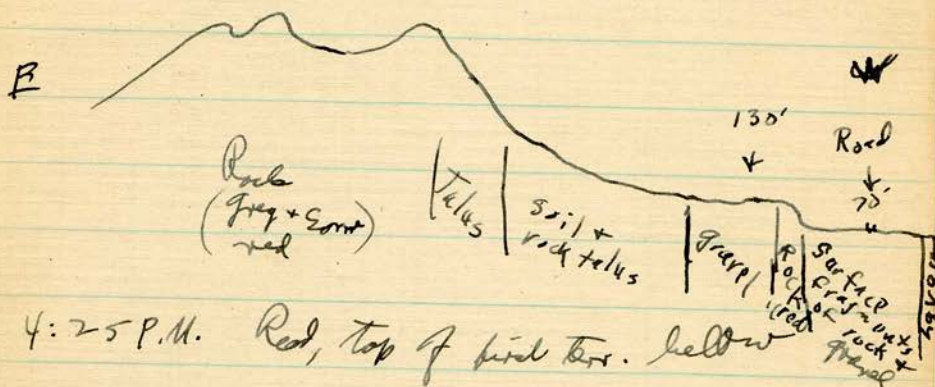 E
W
130'
Road
70'
Rock
(grey + some
red)
Talus
Soil +
rock talus
gravel
Rock
(red)
Surface
fragments
of rock +
gravel
4:25 P.M. Read, top of first terr. below